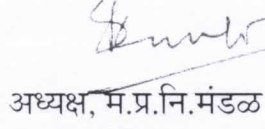 अध्यक्ष, म.प्र.नि.मंडळ